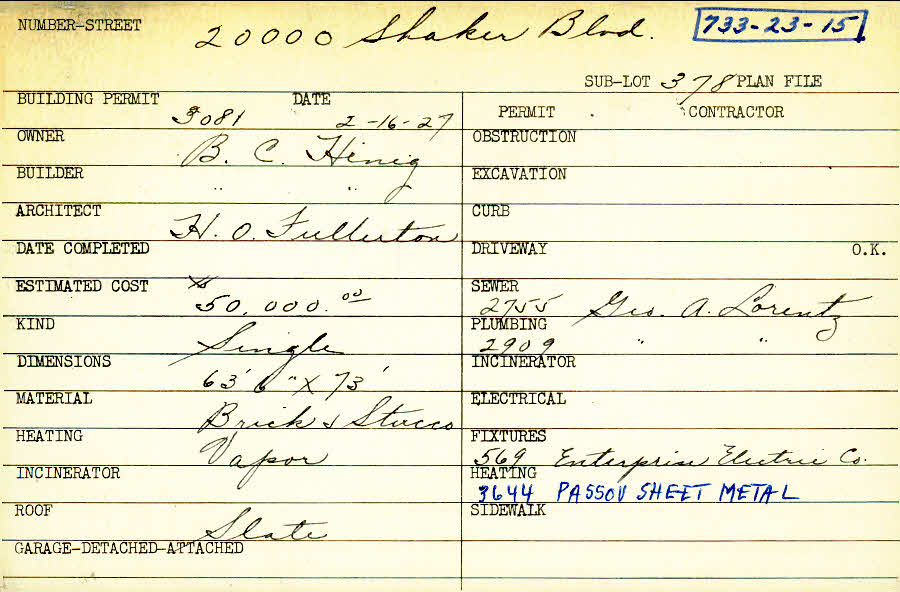 NUMBER-STREET 20000 Shaker Blvd. 733-23-15
SUB-LOT 378 PLAN FILE
BUILDING PERMIT 3081 DATE 2-16-27
OWNER B. C. Hinig
BUILDER " "
ARCHITECT H. O. Fullerton
DATE COMPLETED
ESTIMATED COST 50,000.00
KIND Single
DIMENSIONS 63' 6" X 73'
MATERIAL Brick & Stucco
HEATING Vapor
INCINERATOR
ROOF Slate
GARAGE-DETACHED-ATTACHED
PERMIT CONTRACTOR
OBSTRUCTION
EXCAVATION
CURB
DRIVEWAY O.K.
SEWER 2755 Geo. A. Lorentz
PLUMBING 2909 " "
INCINERATOR
ELECTRICAL
FIXTURES 569 Enterprise Electric Co.
HEATING 3644 PASSOV SHEET METAL
SIDEWALK